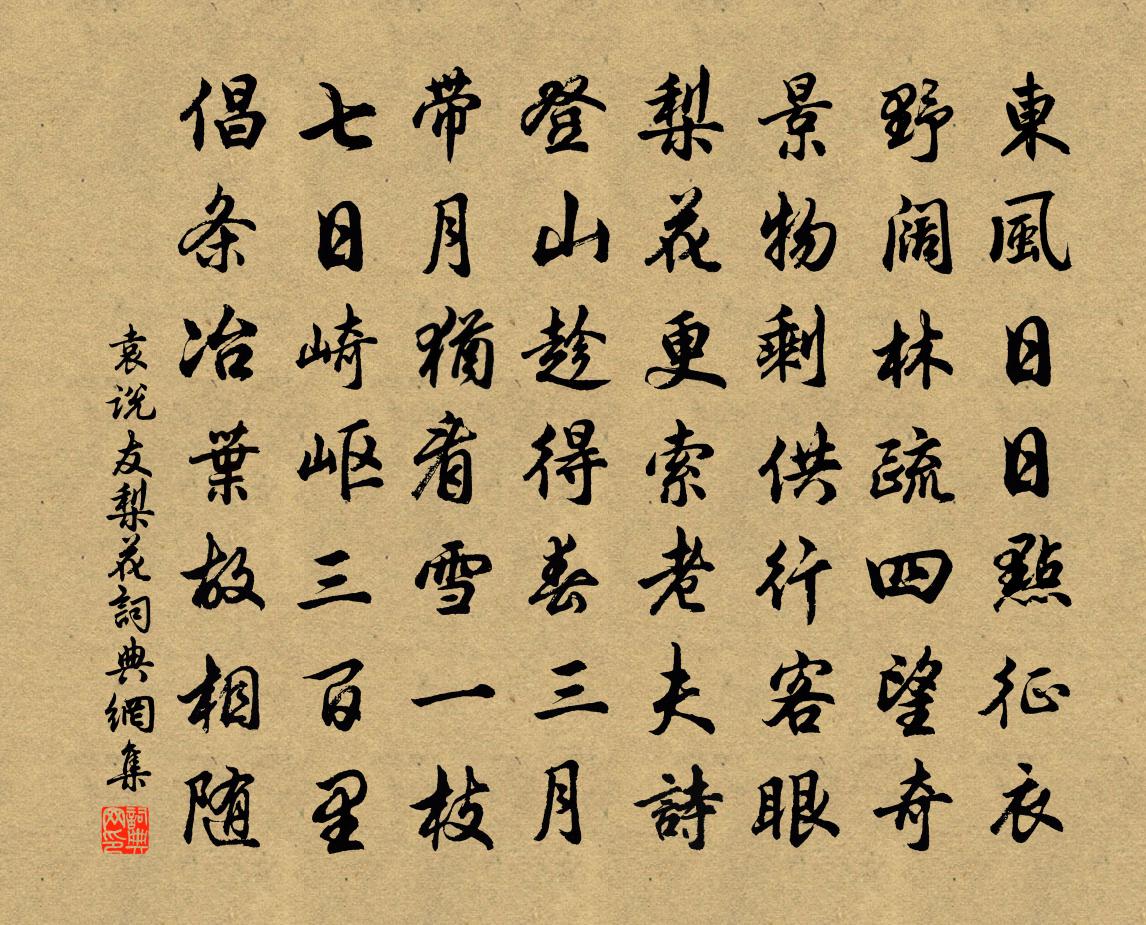 東風日日點征衣
野闊林疏四望奇
景物剩供行客眼
梨花更索老夫詩
登山趁得春三月
带月猶看雪一枝
七日崎岖三百里
倡条冶葉故相随
袁说友梨花詞典網集
詞典网印